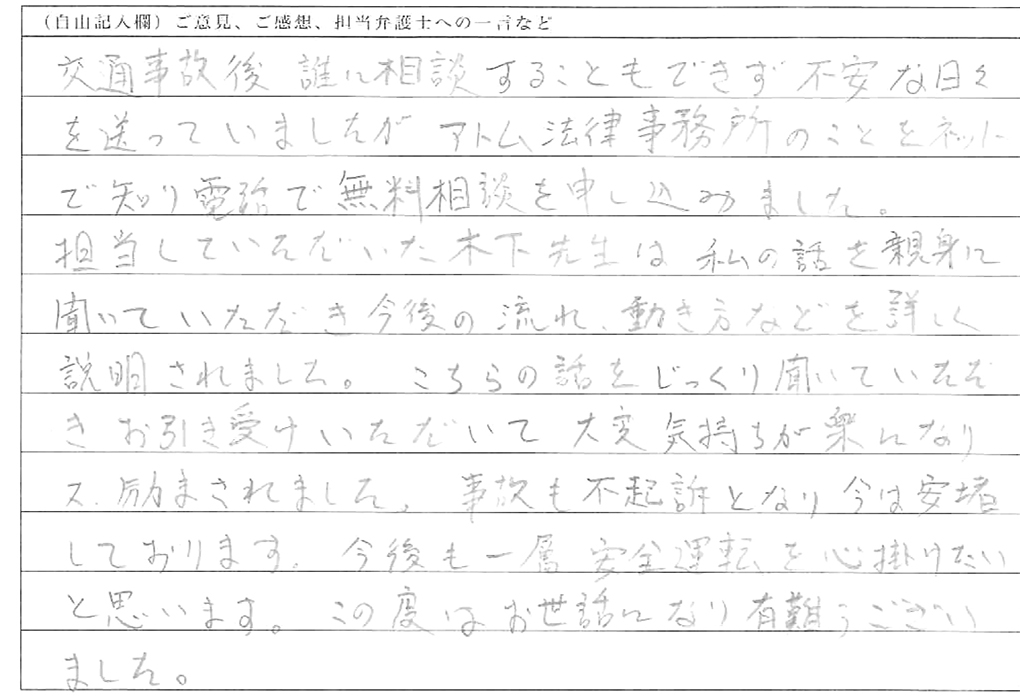 （自由記入欄）ご意見、ご感想、担当弁護士への一言など
交通事故後 誰に相談することもできず 不安な日々
を送っていましたが アトム法律事務所のことをネット
で知り電話で無料相談を申し込みました。
担当していただいた木下先生は 私の話を親身に
聞いていただき今後の流れ、動き方などを詳しく
説明されました。 こちらの話をじっくり聞いていただ
きお引き受けいただいて 大変気持ちが楽になり
又、励まされました。 事故も不起訴となり今は安堵
しております。 今後も一層 安全運転を心掛けたい
と思います。 この度はお世話になり有難うござい
ました。